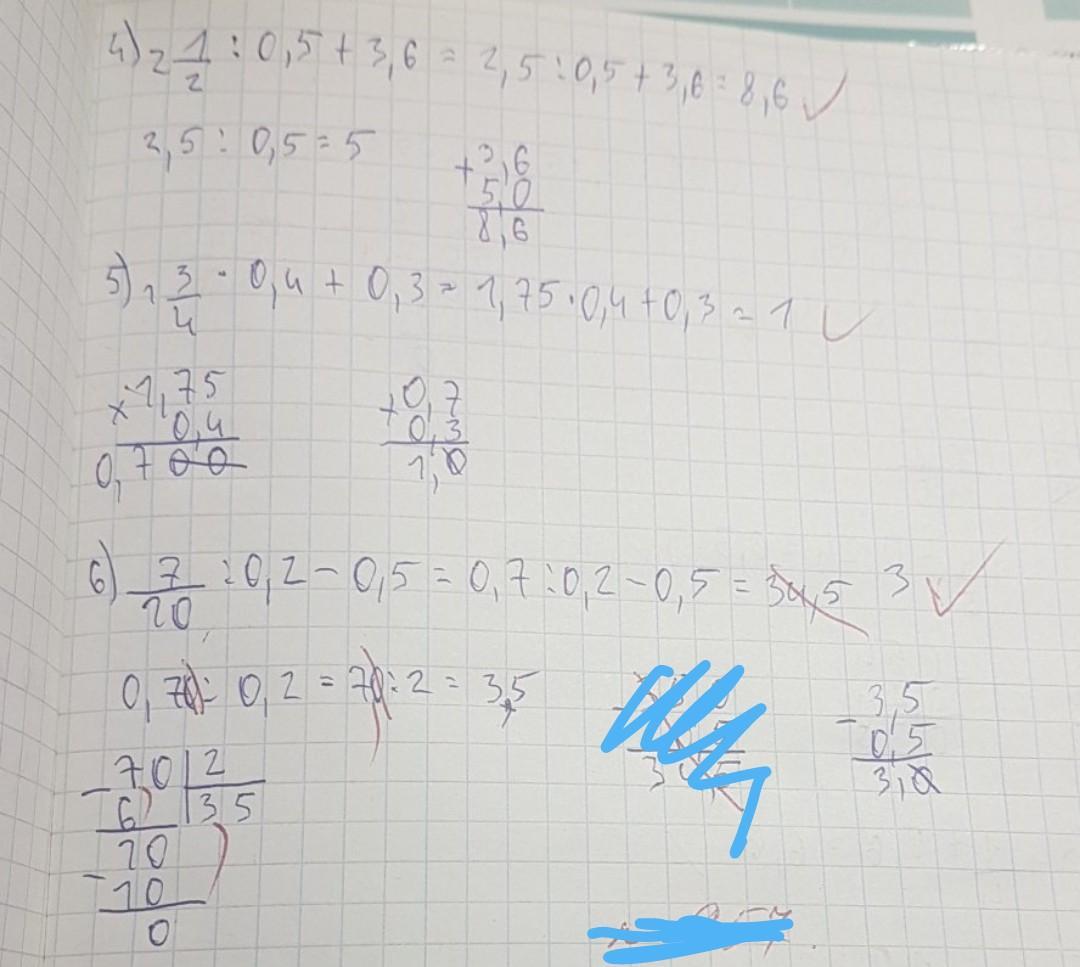 4) 2 1/2 : 0,5 + 3,6 = 2,5 : 0,5 + 3,6 = 8,6 ✓
2,5 : 0,5 = 5
+3,6
5,0
8,6
5) 1 3/4 · 0,4 + 0,3 = 1,75 · 0,4 + 0,3 = 1 ✓
×1,75
0,4
0,700
+0,7
0,3
1,0
6) 7/20 : 0,2 - 0,5 = 0,7 : 0,2 - 0,5 = 34,5 3 ✓
0,70 : 0,2 = 70 : 2 = 3,5
-70 | 2
6 | 35
-10
10
0
-3,5
0,5
3,0